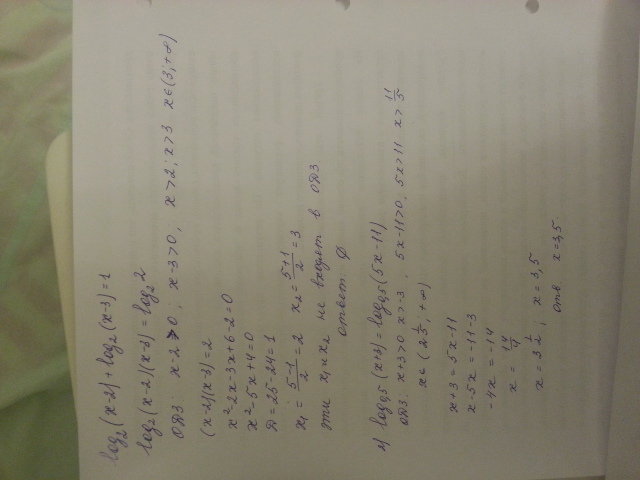 log₂(x-2)+log₂(x-3)=1
log₂(x-2)(x-3)=log₂2
ОДЗ: x-2>0; x-3>0; x>2; x>3 x∈(3;+∞)
(x-2)(x-3)=2
x²-2x-3x+6-2=0
x²-5x+4=0
D=25-24=1
x₁=(5-1)/2=2 x₂=(5+1)/2=3
эти x₁ и x₂ не входят в ОДЗ
ответ: ∅
log₀,₅(x+3)=log₀,₅(5x-11)
ОДЗ. x+3>0 x>-3, 5x-11>0, 5x>11 x>11/5
x∈(2 1/5; +∞)
x+3=5x-11
x-5x=-11-3
-4x=-14
x=14/4
x=3 1/2; x=3,5
отв. x=3,5.